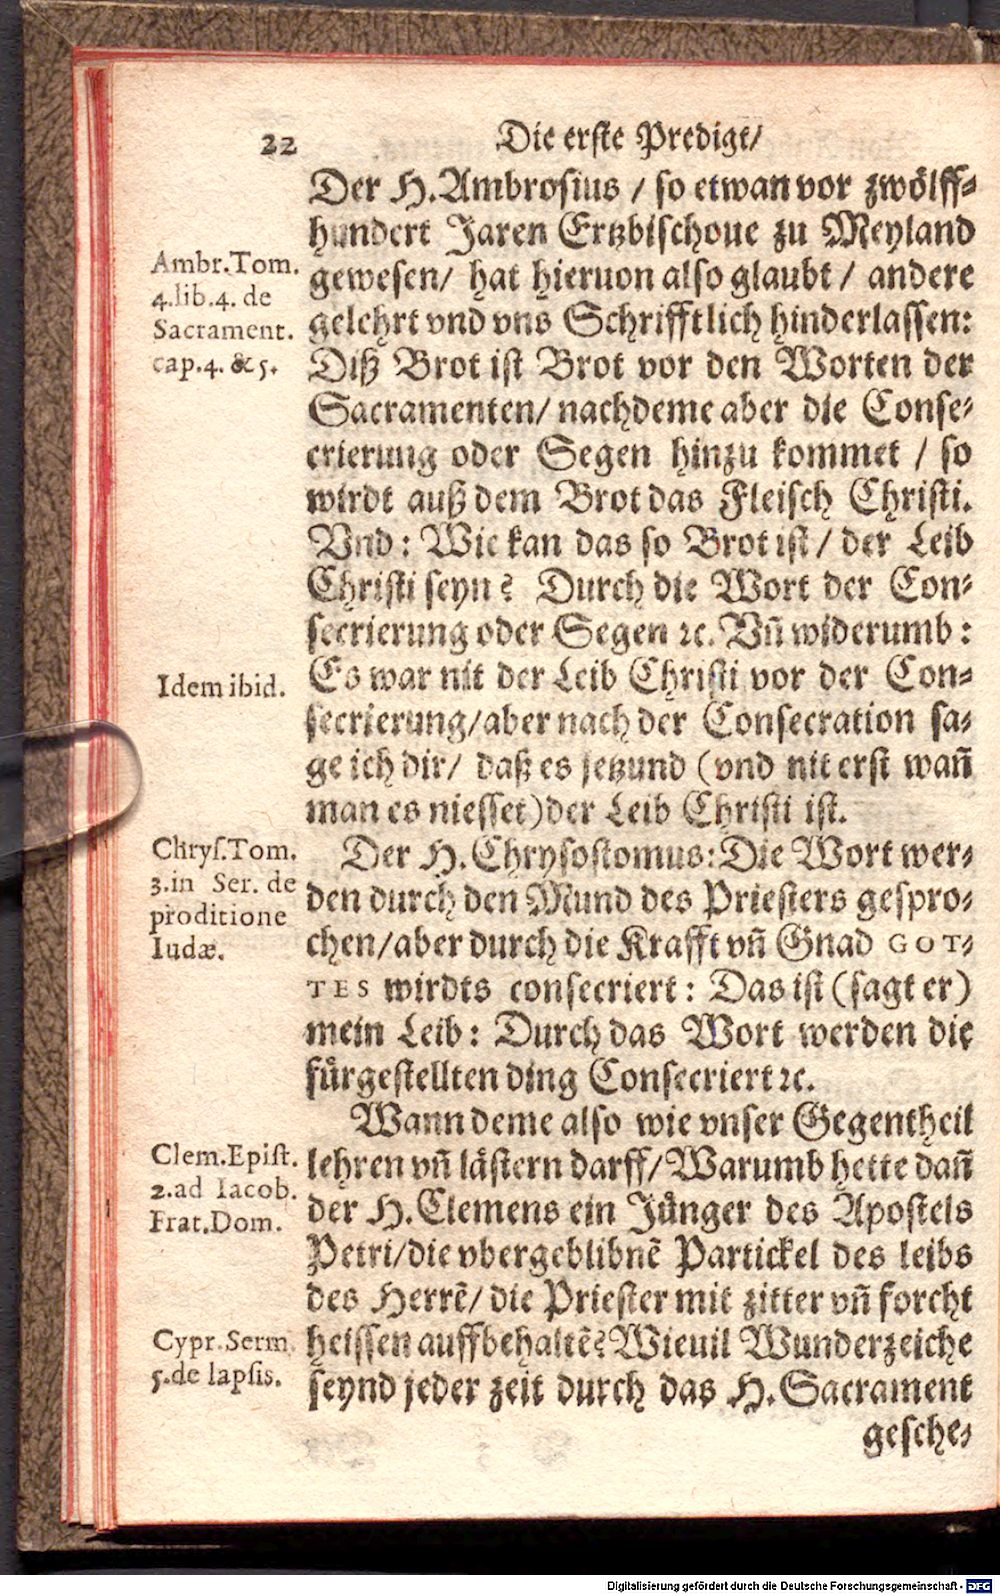 22
Die erste Predigt/
Der H. Ambrosius / so etwan vor zwölff-
hundert Jaren Ertzbischoue zu Meyland
gewesen/ hat hieruon also glaubt / andere
gelehrt vnd vns Schrifftlich hinderlassen:
Diß Brot ist Brot vor den Worten der
Sacramenten/ nachdeme aber die Conse-
crierung oder Segen hinzu kommet / so
wirdt auß dem Brot das Fleisch Christi.
Vnd: Wie kan das so Brot ist / der Leib
Christi seyn? Durch die Wort der Con-
secrierung oder Segen ꝛc. Vñ widerumb:
Es war nit der Leib Christi vor der Con-
secrierung/ aber nach der Consecration sa-
ge ich dir/ daß es jetzund (vnd nit erst wañ
man es niesset) der Leib Christi ist.
Der H. Chrysostomus: Die Wort wer-
den durch den Mund des Priesters gespro-
chen/ aber durch die Krafft vñ Gnad GOT-
TES wirdts consecriert: Das ist (sagt er)
mein Leib: Durch das Wort werden die
fürgestellten ding Consecriert ꝛc.
Wann deme also wie vnser Gegentheil
lehren vñ lästern darff/ Warumb hette dañ
der H. Clemens ein Jünger des Apostels
Petri/ die vbergeblibnẽ Partickel des leibs
des Herrẽ/ die Priester mit zitter vñ forcht
heissen auffbehaltẽ? Wieuil Wunderzeiche
seynd jeder zeit durch das H. Sacrament
gesche-
Ambr. Tom.
4. lib. 4. de
Sacrament.
cap. 4. & 5.
Idem ibid.
Chrys. Tom.
3. in Ser. de
proditione
Iudæ.
Clem. Epist.
2. ad Iacob.
Frat. Dom.
Cypr. Serm.
5. de lapsis.
Digitalisierung gefördert durch die Deutsche Forschungsgemeinschaft - DFG